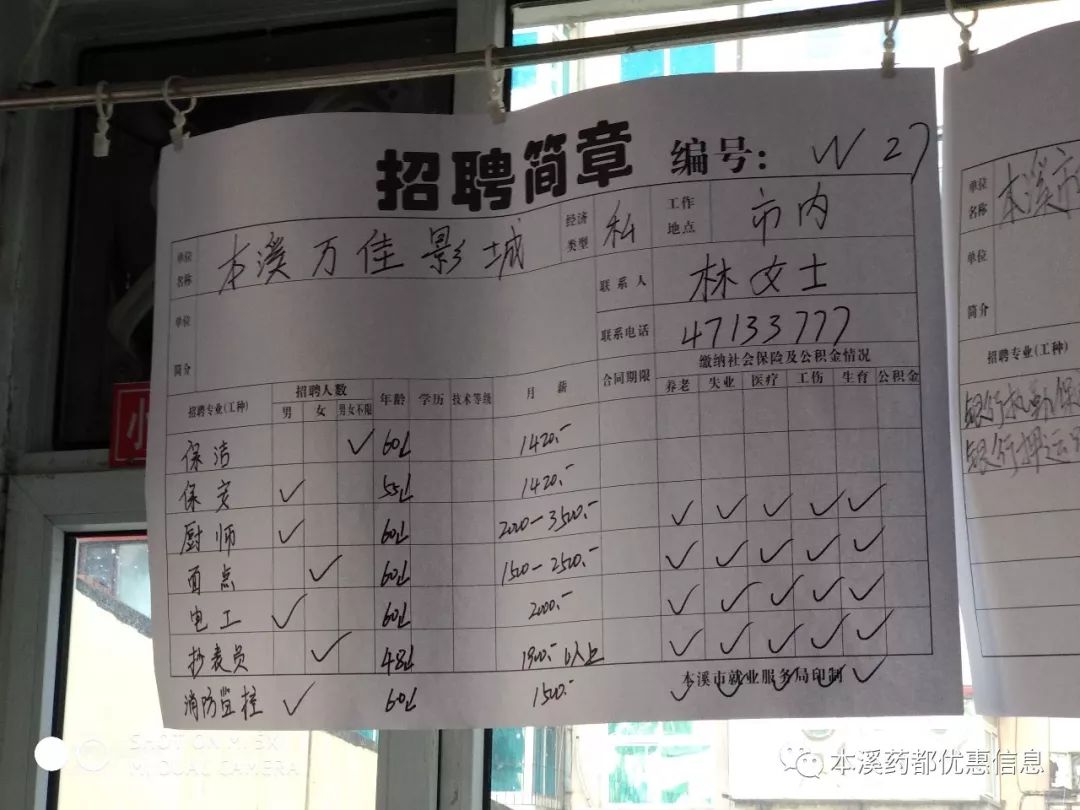 招聘简章 编号: W 27
单位名称 本溪万佳影城 经济类型 私 工作地点 市内
单位简介 联系人 林女士
联系电话 47133777
招聘专业(工种) 招聘人数 男 女 男女不限 年龄 学历 技术等级 月薪 合同期限 缴纳社会保险及公积金情况 养老 失业 医疗 工伤 生育 公积金
保洁 ✓ 60以 1420.-
保安 ✓ 55以 1420.-
厨师 ✓ 60以 2000-3500.- ✓ ✓ ✓ ✓ ✓
面点 ✓ 60以 1500-2500.- ✓ ✓ ✓ ✓ ✓
电工 ✓ 60以 2000.- ✓ ✓ ✓ ✓ ✓
抄表员 ✓ 48以 1900.-以上 ✓ ✓ ✓ ✓ ✓
消防监控 ✓ 60以 1500.- ✓ ✓ ✓ ✓ ✓
本溪市就业服务局印制
单位名称 本溪市
单位简介
招聘专业(工种)
银行执勤保
银行押运
小
SHOT ON MI 5X
MI DUAL CAMERA
本溪药都优惠信息